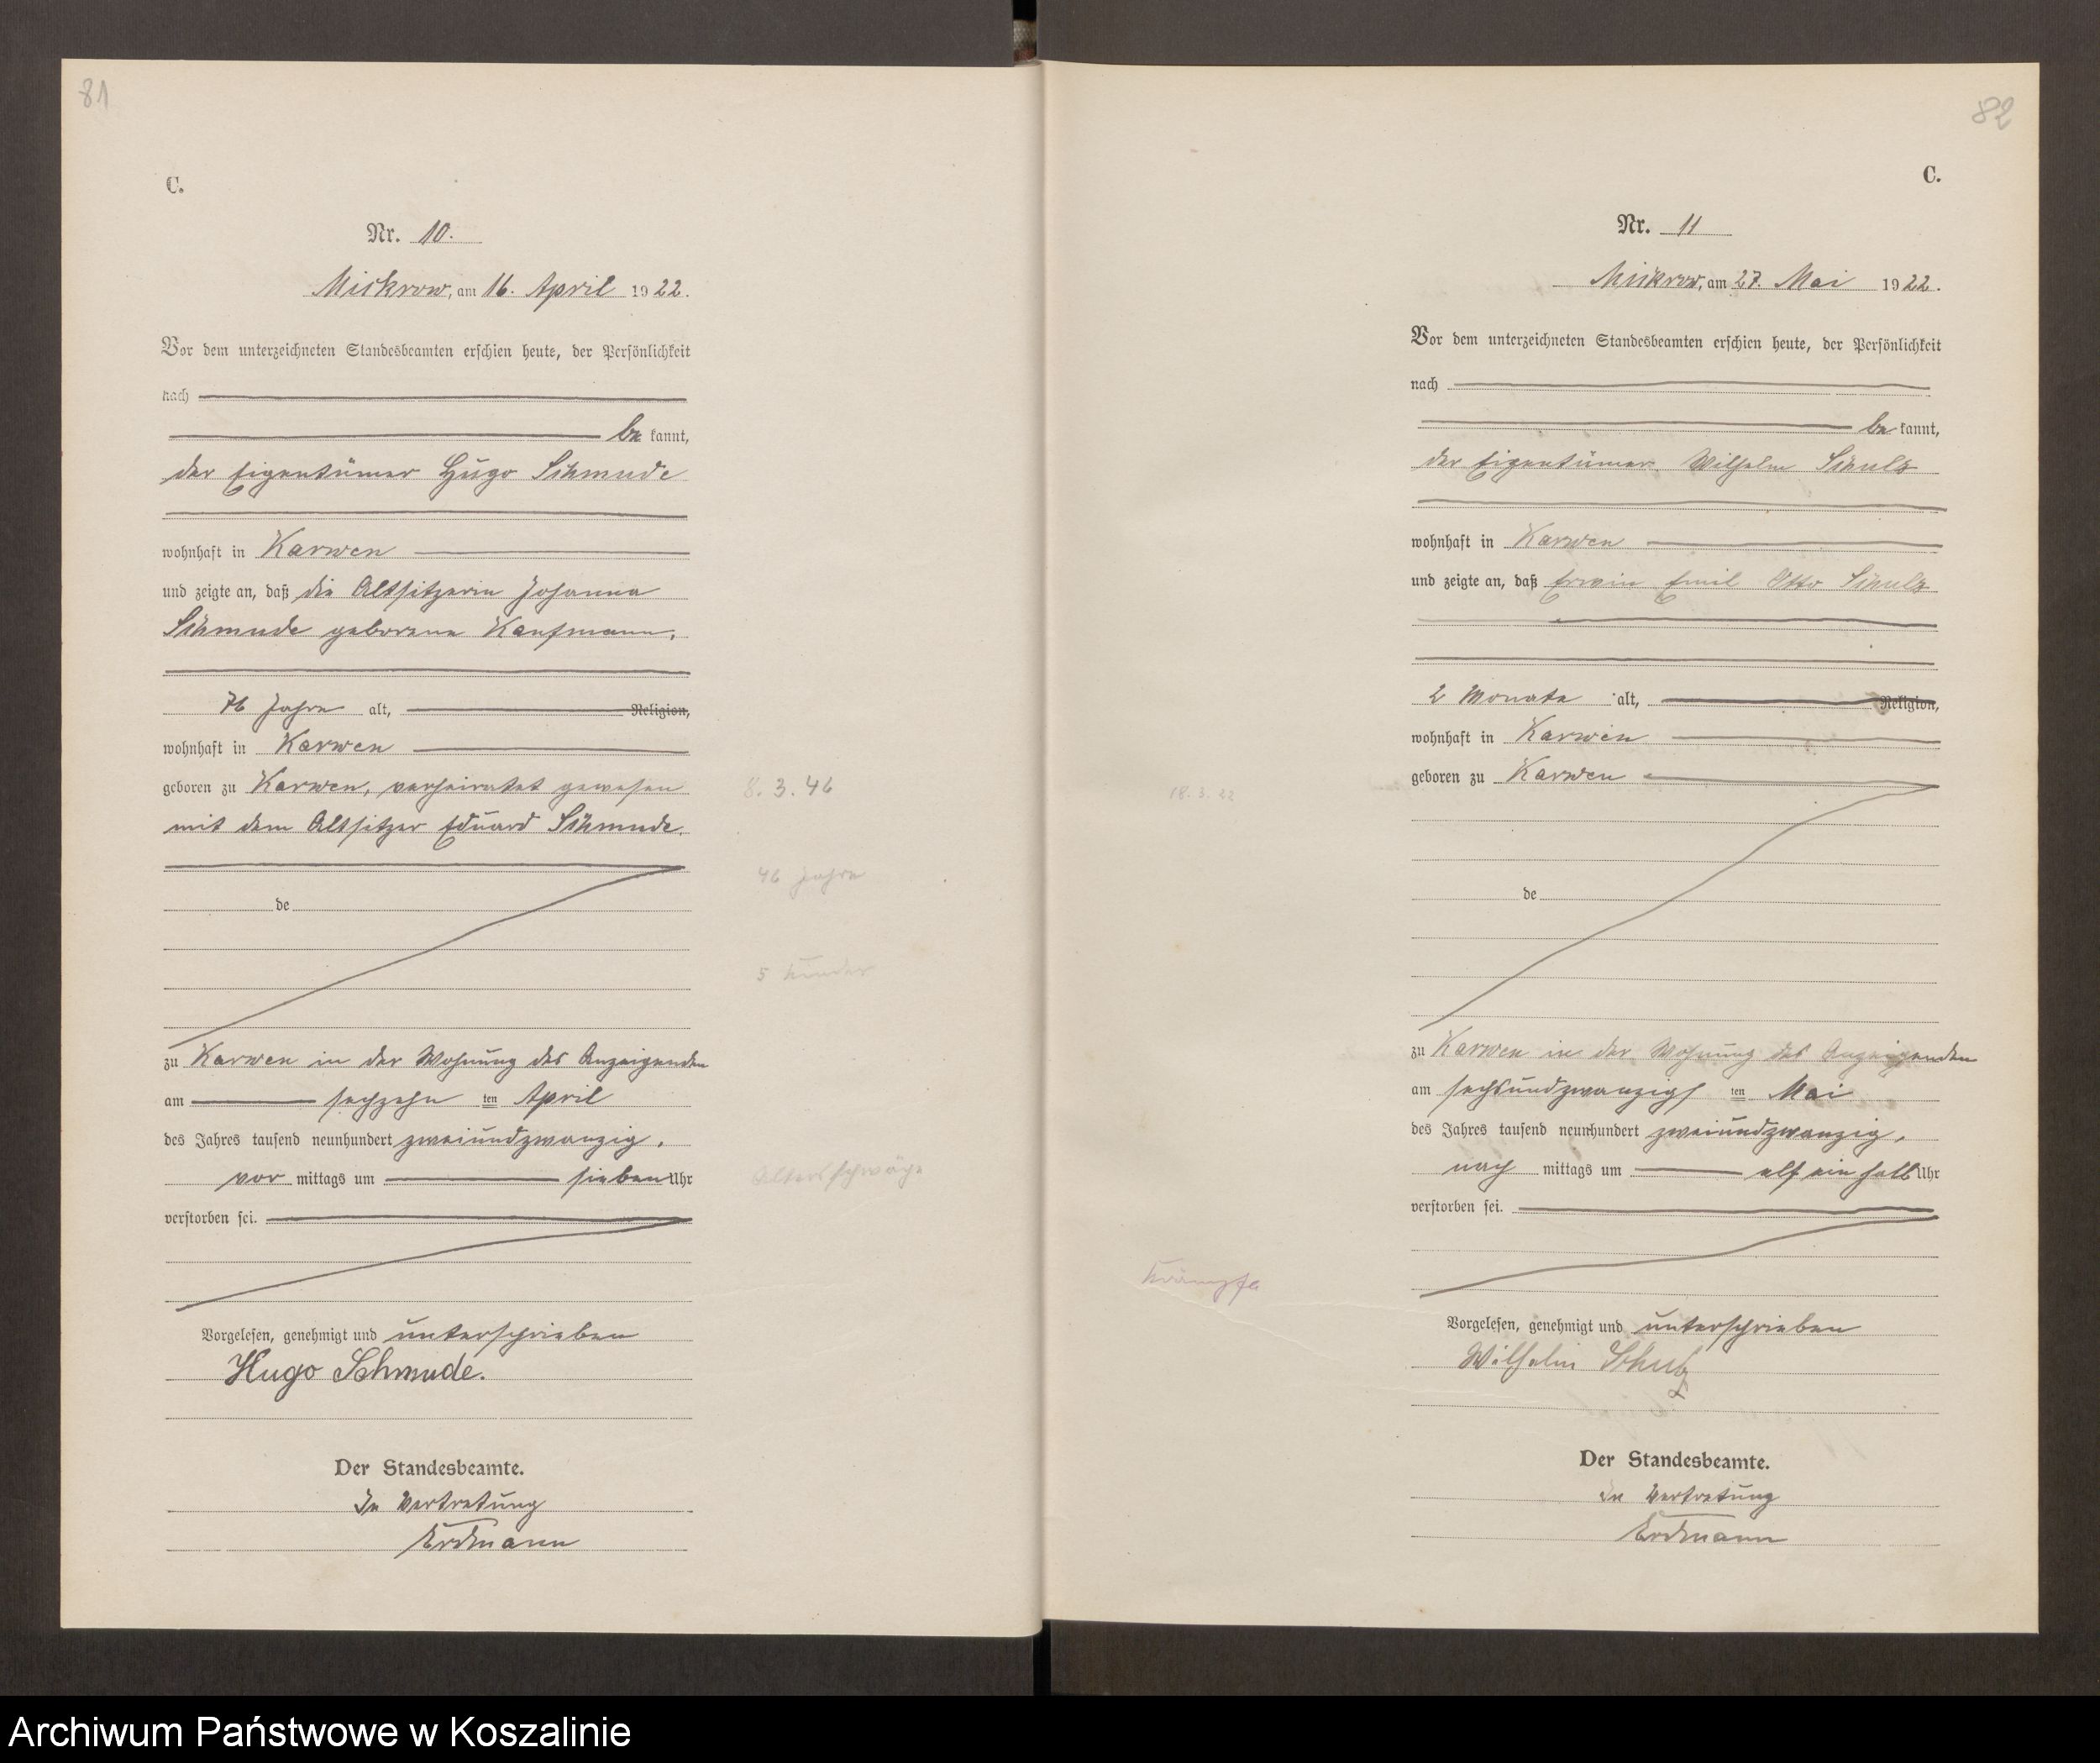 81
C.
Nr. 10.
Mickrow, am 16. April 1922.
Vor dem unterzeichneten Standesbeamten erschien heute, der Persönlichkeit
nach
be kannt,
der Eigentümer Hugo Schmude
wohnhaft in Karwen
und zeigte an, daß die Altsitzerin Johanna
Schmude geborene Kaufmann,
76 Jahre alt, Religion,
wohnhaft in Karwen
geboren zu Karwen, verheiratet gewesen
mit dem Altsitzer Eduard Schmude,
de
zu Karwen in der Wohnung des Anzeigenden
am sechzehn ten April
des Jahres tausend neunhundert zweiundzwanzig,
vor mittags um sieben Uhr
verstorben sei.
Vorgelesen, genehmigt und unterschrieben
Hugo Schmude.
Der Standesbeamte.
In Vertretung
Erdmann
8. 3. 46
46 Jahre
5 Kinder
Altersschwäche
82
C.
Nr. 11
Mickrow, am 27. Mai 1922.
Vor dem unterzeichneten Standesbeamten erschien heute, der Persönlichkeit
nach
be kannt,
der Eigentümer Wilhelm Schulz
wohnhaft in Karwen
und zeigte an, daß Erwin Emil Otto Schulz
2 Monate alt, Religion,
wohnhaft in Karwen
geboren zu Karwen
de
zu Karwen in der Wohnung des Anzeigenden
am sechsundzwanzigs ten Mai
des Jahres tausend neunhundert zweiundzwanzig,
nach mittags um elf ein halb Uhr
verstorben sei.
Vorgelesen, genehmigt und unterschrieben
Wilhelm Schulz
Der Standesbeamte.
In Vertretung
Erdmann
18. 3. 22
Krämpfe
Archiwum Państwowe w Koszalinie